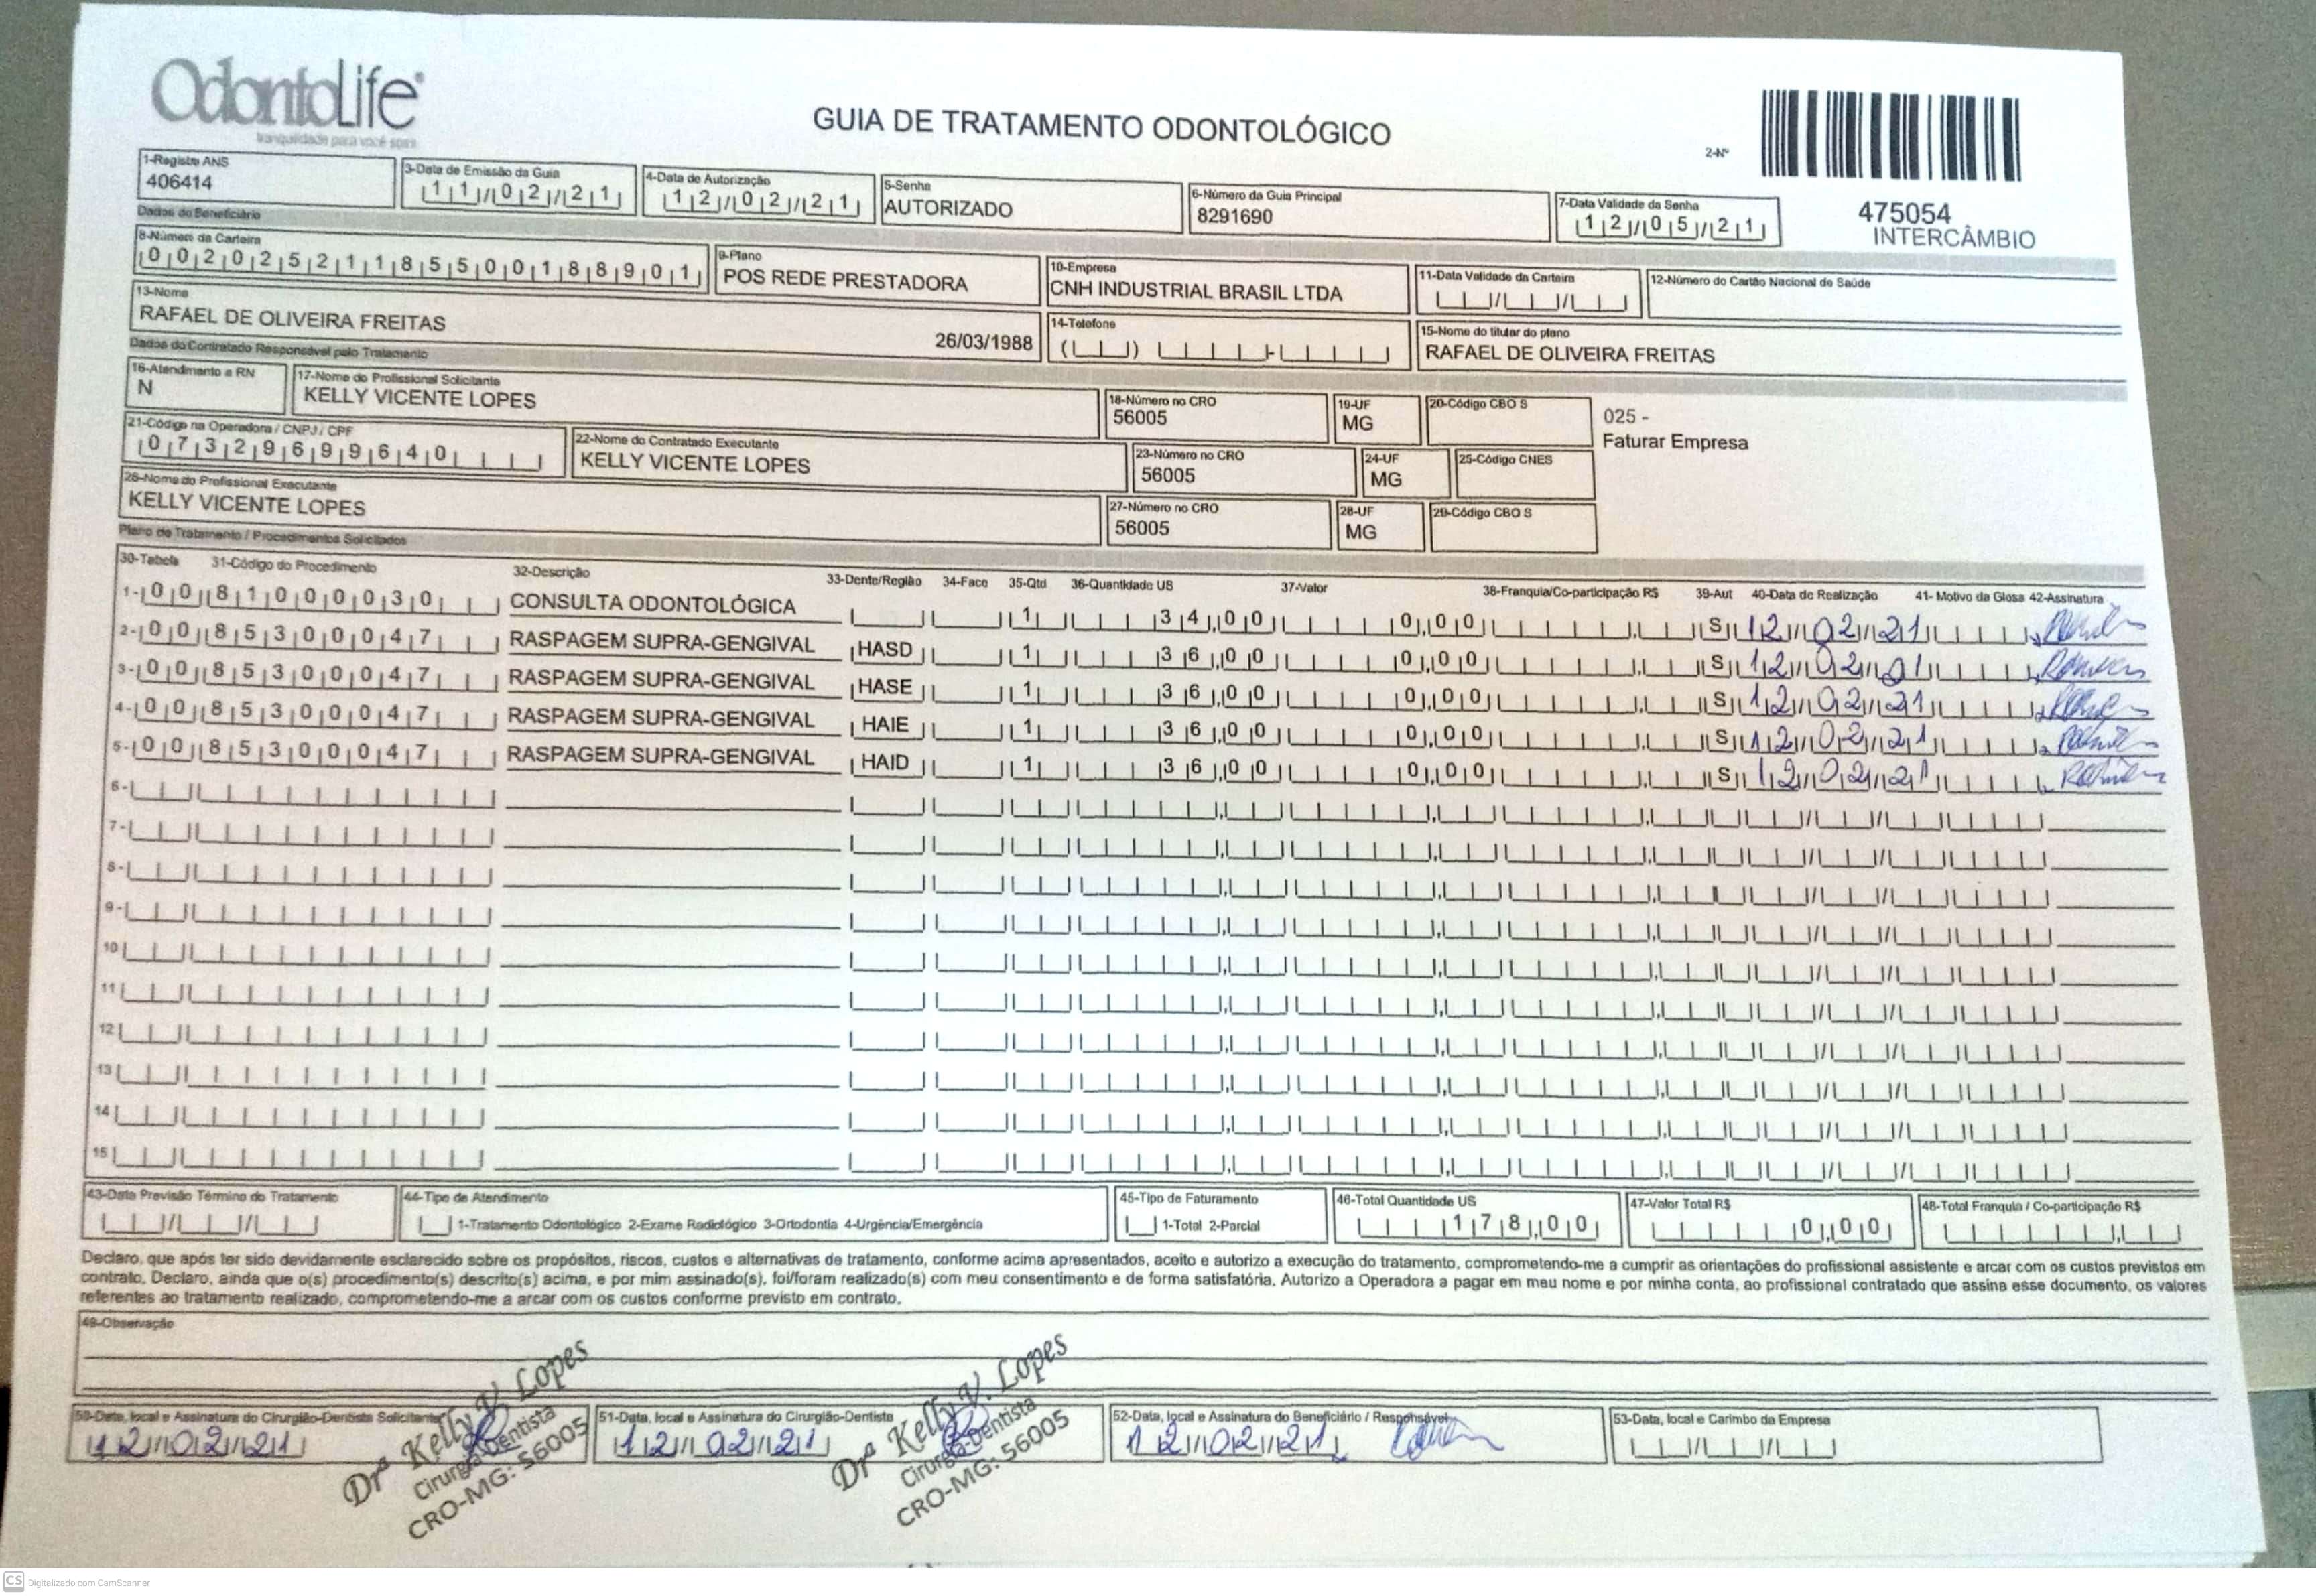 OdontoLife®
tranquilidade para você sorrir
GUIA DE TRATAMENTO ODONTOLÓGICO
2-Nº
475054
INTERCÂMBIO
1-Registro ANS
406414
3-Data de Emissão da Guia
11/02/21
4-Data de Autorização
12/02/21
5-Senha
AUTORIZADO
6-Número da Guia Principal
8291690
7-Data Validade da Senha
12/05/21
Dados do Beneficiário
8-Número da Carteira
00202521185500188901
9-Plano
POS REDE PRESTADORA
10-Empresa
CNH INDUSTRIAL BRASIL LTDA
11-Data Validade da Carteira
12-Número do Cartão Nacional de Saúde
13-Nome
RAFAEL DE OLIVEIRA FREITAS
26/03/1988
14-Telefone
15-Nome do titular do plano
RAFAEL DE OLIVEIRA FREITAS
Dados do Contratado Responsável pelo Tratamento
16-Atendimento a RN
N
17-Nome do Profissional Solicitante
KELLY VICENTE LOPES
18-Número no CRO
56005
19-UF
MG
20-Código CBO S
025 -
Faturar Empresa
21-Código na Operadora / CNPJ / CPF
07329699640
22-Nome do Contratado Executante
KELLY VICENTE LOPES
23-Número no CRO
56005
24-UF
MG
25-Código CNES
26-Nome do Profissional Executante
KELLY VICENTE LOPES
27-Número no CRO
56005
28-UF
MG
29-Código CBO S
Plano de Tratamento / Procedimentos Solicitados
30-Tabela 31-Código do Procedimento 32-Descrição 33-Dente/Região 34-Face 35-Qtd 36-Quantidade US 37-Valor 38-Franquia/Co-participação R$ 39-Aut 40-Data de Realização 41- Motivo da Glosa 42-Assinatura
1- 00 81000030 CONSULTA ODONTOLÓGICA 1 34,00 0,00 S 12/02/21
2- 00 85300047 RASPAGEM SUPRA-GENGIVAL HASD 1 36,00 0,00 S 12/02/21
3- 00 85300047 RASPAGEM SUPRA-GENGIVAL HASE 1 36,00 0,00 S 12/02/21
4- 00 85300047 RASPAGEM SUPRA-GENGIVAL HAIE 1 36,00 0,00 S 12/02/21
5- 00 85300047 RASPAGEM SUPRA-GENGIVAL HAID 1 36,00 0,00 S 12/02/21
6-
7-
8-
9-
10
11
12
13
14
15
43-Data Previsão Término do Tratamento
44-Tipo de Atendimento
1-Tratamento Odontológico 2-Exame Radiológico 3-Ortodontia 4-Urgência/Emergência
45-Tipo de Faturamento
1-Total 2-Parcial
46-Total Quantidade US
178,00
47-Valor Total R$
0,00
48-Total Franquia / Co-participação R$
Declaro, que após ter sido devidamente esclarecido sobre os propósitos, riscos, custos e alternativas de tratamento, conforme acima apresentados, aceito e autorizo a execução do tratamento, comprometendo-me a cumprir as orientações do profissional assistente e arcar com os custos previstos em
contrato. Declaro, ainda que o(s) procedimento(s) descrito(s) acima, e por mim assinado(s), foi/foram realizado(s) com meu consentimento e de forma satisfatória. Autorizo a Operadora a pagar em meu nome e por minha conta, ao profissional contratado que assina esse documento, os valores
referentes ao tratamento realizado, comprometendo-me a arcar com os custos conforme previsto em contrato.
49-Observação
50-Data, local e Assinatura do Cirurgião-Dentista Solicitante
12/02/21
Drª Kelly V. Lopes
Cirurgiã-Dentista
CRO-MG: 56005
51-Data, local e Assinatura do Cirurgião-Dentista
12/02/21
Drª Kelly V. Lopes
Cirurgiã-Dentista
CRO-MG: 56005
52-Data, local e Assinatura do Beneficiário / Responsável
12/02/21
53-Data, local e Carimbo da Empresa
CS Digitalizado com CamScanner